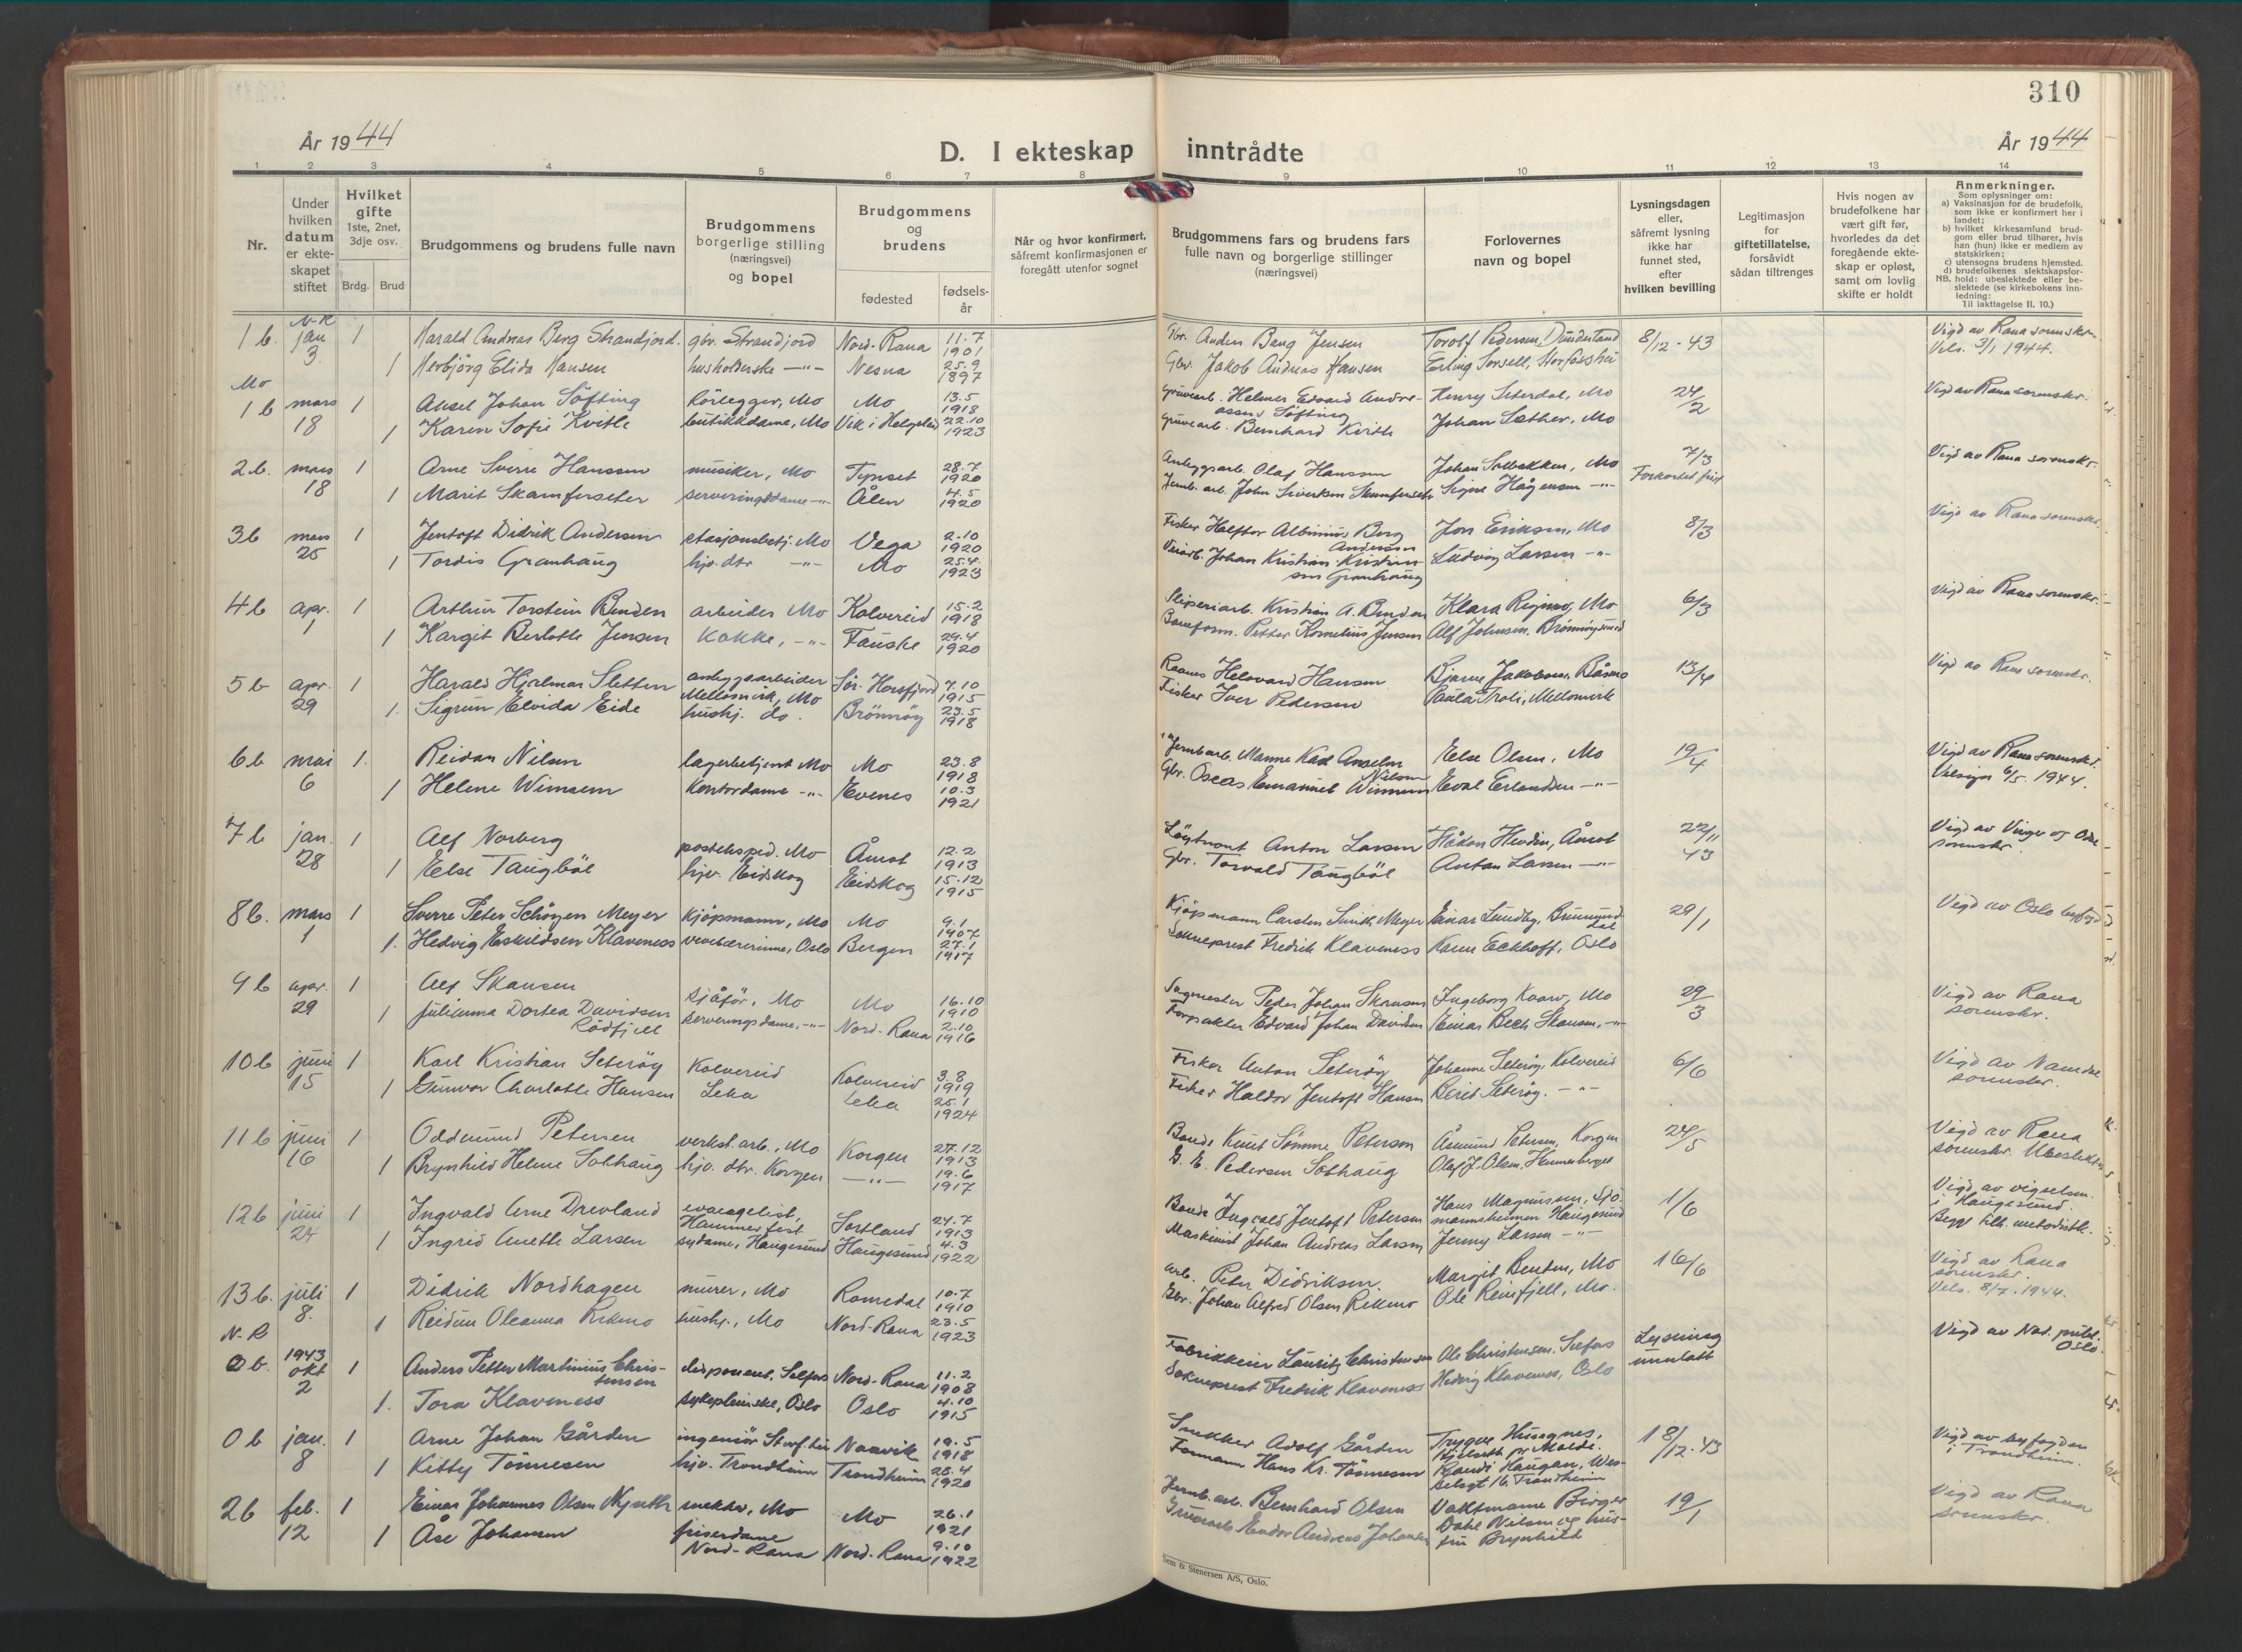 310
År 1944
D. I ekteskap inntrådte
År 1944
1 2 3 4 5 6 7 8 9 10 11 12 13 14
Nr.
Under
hvilken
datum
er ekte-
skapet
stiftet
Hvilket
gifte
1ste, 2net,
3dje osv.
Brdg. Brud
Brudgommens og brudens fulle navn
Brudgommens
borgerlige stilling
(næringsvei)
og bopel
Brudgommens
og
brudens
fødested
fødsels-
år
Når og hvor konfirmert,
såfremt konfirmasjonen er
foregått utenfor sognet
Brudgommens fars og brudens fars
fulle navn og borgerlige stillinger
(næringsvei)
Forlovernes
navn og bopel
Lysningsdagen
eller,
såfremt lysning
ikke har
funnet sted,
efter
hvilken bevilling
Legitimasjon
for
giftetillatelse,
forsåvidt
sådan tiltrenges
Hvis nogen av
brudefolkene har
vært gift før,
hvorledes da det
foregående ekte-
skap er opløst,
samt om lovlig
skifte er holdt
Anmerkninger.
Som oplysninger om:
a) Vaksinasjon for de brudefolk,
som ikke er konfirmert her i
landet;
b) hvilket kirkesamfund brud-
gom eller brud tilhører, hvis
han (hun) ikke er medlem av
statskirken;
c) utensogns brudens hjemsted.
d) brudefolkenes slektskapsfor-
NB. hold: ubeslektede eller be-
slektede (se kirkebokens inn-
ledning:
Til iakttagelse II. 10.)
N-R
1 b. jan 3. 1 Harald Andreas Berg Strandjord. gbr. Strandjord Nord-Rana 11.7 1901 Gbr. Anders Berg Jensen Torolf Pedersen, Dunderland 8/12-43 Vigd av Rana sorenskr.
1 Herbjörg Elida Hansen husholderske -"- Nesna 25.9 1897 Gbr. Jakob Andreas Hansen Erling Sorsell, Storfosshei Vels. 3/1 1944.
Mo
1 b mars 18 1 Aksel Johan Söfting Rörlegger, Mo Mo 13.5 1918 Gruvearb. Helmer Edvard Andre- assen Söfting Henry Seterdal, Mo 24/2 Vigd av Rana sorenskr.
1 Karen Sofie Kvitle butikkdame, Mo Vik i Helgeland 22.10 1923 Gruvearb. Bernhard Kvitle Johan Sæther, Mo
2 b. mars 18 1 Arne Sverre Hanssen musiker, Mo Tynset 28.7 1920 Anleggsarb. Olaf Hanssen Johan Solbakken, Mo 7/3 Vigd av Rana sorenskr.
1 Marit Skamferseter serveringsdame -"- Ålen 4.5 1920 Jernb. arb. John Sivertsen Skamferseter Signe Hågensen -"- Forkortet frist
3 b mars 25 1 Jentoft Didrik Andersen stasjonsbetj. Mo Vega 2.10 1920 Fisker Helftor Albinius Berg Andersen Jon Eriksen, Mo 8/3 Vigd av Rana sorenskr.
1 Tordis Granhaug hjv. dtr -"- Mo 25.4 1923 Veiarb. Johan Kristian Kristian- sen Granhaug Ludvig Larsen -"-
4 b apr. 1 1 Arthur Torstein Benden arbeider Mo Kolvereid 15.2 1918 Sliperiarb. Kristian A. Benden Klara Rigmo, Mo 6/3 Vigd av Rana sorenskr.
1 Margit Berlotte Jensen kokke, -"- Fauske 29.4 1920 Baneform. Petter Kornelius Jensen Alf Johnsen. Brönnöysund
5 b apr. 29 1 Harald Hjalmar Sletten anleggsarbeider Mellomvik, Mo Sör-Horsfjord 7.10 1915 Helevard Hansen Bjarne Jakobsen, Båsmo 13/4 Vigd av Rana sorenskr.
1. Sigrun Elvida Eide hushj. do. Brönnöy 23.5 1918 Fisker Iver Pedersen Paula Troli, Mellomvik
6 b mai 6 1. Reidar Nilsen lagerbetjent Mo Mo 23.8 1918 Jernbarb. Manne Karl Anselm Nilsen Else Olsen, Mo 19/4 Vigd av Rana sorenskr.
1 Helene Wimsem Kontordame -"- Evenes 10.3 1921 Gbr. Oscar Emanuel Wimsem Eval Erlandsen -"- Velsign 6/5. 1944.
7 b jan. 28 1 Alf Norberg posteksped. Mo Åmot 12.2 1913 Löytnant Anton Larsen Håkon Hevdin, Åmot 22/11 43 Vigd av Vinger og Odal sorenskr.
1 Else Taugböl hjv. Eidskog Eidskog 15.12 1915 Gbr. Torvald Taugböl Anton Larsen -"-
8 b. mars 1 1 Sverre Peter Schöyen Meyer Kjöpmann, Mo Mo 9.1 1907 Kjöpmann Carsten Smith Meyer Einar Lundby, Brumund- dal 29/1 Vigd av Oslo byfogd
1. Hedvig Eskildsen Klaveness vevelærerinne, Oslo Bergen 27.1 1917 Sokneprest Fredrik Klaveness Karen Eckhoff, Oslo
9 b apr. 29 1 Alf Skansen Sjåför, Mo Mo 16.10 1910 Sagmester Peder Johan Skansen Ingeborg Kvarv, Mo 29/3 Vigd av Rana sorenskr.
1 Julianna Dortea Davidsen Rödfjell Serveringsdame, -"- Nord-Rana 2.10 1916 Forpakter Edvard Johan Davidsen Einar Bech Skansen, -"-
10 b juni 15 1 Karl Kristian Seteröy Kolvereid Kolvereid 3.8 1919 Fisker Anton Seteröy Johanne Seteröy, Kolvereid 6/6 Vigd av Namdal sorenskr.
1 Gunvor Charlotte Hansen Leka Leka 25.1 1924 Fisker Haldor Jentoft Hansen Berit Seteröy. -"-
11 b juni 16 1 Oddmund Petersen verkst. arb., Mo Korgen 27.12 1913 Bonde Knut Sömme Petersen Åsmund Petersen, Korgen 24/5 Vigd av Rana
1 Brynhild Helene Solhaug hjv. dtr. Korgen -"- 19.6 1917 G. E. Pedersen Solhaug Olaf J. Olsen, Hemnesberget sorenskr. Ubeslektet
12 b juni 24 1 Ingvald Arne Drevland evangelist, Hammerfest Sortland 24.7 1913 Bonde Ingvald Jentoft Petersen Hans Magnussen, Sjö- mannsheimen Haugesund 1/6 Vigd av vigselsm. i Haugesund.
1 Ingrid Anette Larsen sydame, Haugesund Haugesund 4.3 1922 Maskinist Johan Andreas Larsen Jenny Larsen -"- Begge tilh. metodistk.
13 b. juli 8. 1 Didrik Nordhagen murer, Mo Romedal 10.7 1910 Arb. Peter Didriksen Margit Benden, Mo 16/6 Vigd av Rana sorenskr.
1 Reidun Oleanna Rikmo hushj., Mo Nord-Rana 23.5 1923 Gbr. Johan Alfred Olsen Rikmo Ole Reinfjell, Mo. Vels. 8/7. 1944.
N-R
0 b. 1943 okt 2 1 Anders Petter Martinius Chris- tensen disponent, Selfors Nord-Rana 11.2 1908 Fabrikkeier Lauritz Christensen Ole Christensen, Selfors Lysning unnlatt Vigd av Not. publ. Oslo.
1. Tora Klaveness sykepleierske, Oslo Oslo 4.10 1915 Sokneprest Fredrik Klaveness Hedvig Klaveness, Oslo
0 b jan. 8 1 Arne Johan Gården ingeniör Storf.hei Narvik 19.5 1918 Snekker Adolf Gården Trygve Husegnes, Hjelseth pr Molde. 18/12-43 Vigd av byfogden
1 Kitty Tönnesen hjv. Trondheim Trondheim 28.4 1920 Formann Hans Kr. Tönnesen Randi Haugan, Wes- selsgt 16, Trondheim i Trondheim.
2 b feb. 12 1 Einar Johannes Olsen Nyseth snekker, Mo Mo 26.1 1921 Jernb. arb. Bernhard Olsen Vaktmann Birger Dahl Nilsen og hus- 19/1 Vigd av Rana
1 Åse Johansen friserdame Nord-Rana Nord-Rana 9.10 1922 Gruvearb. Endor Andreas Johansen fru Brynhild sorenskr.
Sem & Stenersen A/S, Oslo.